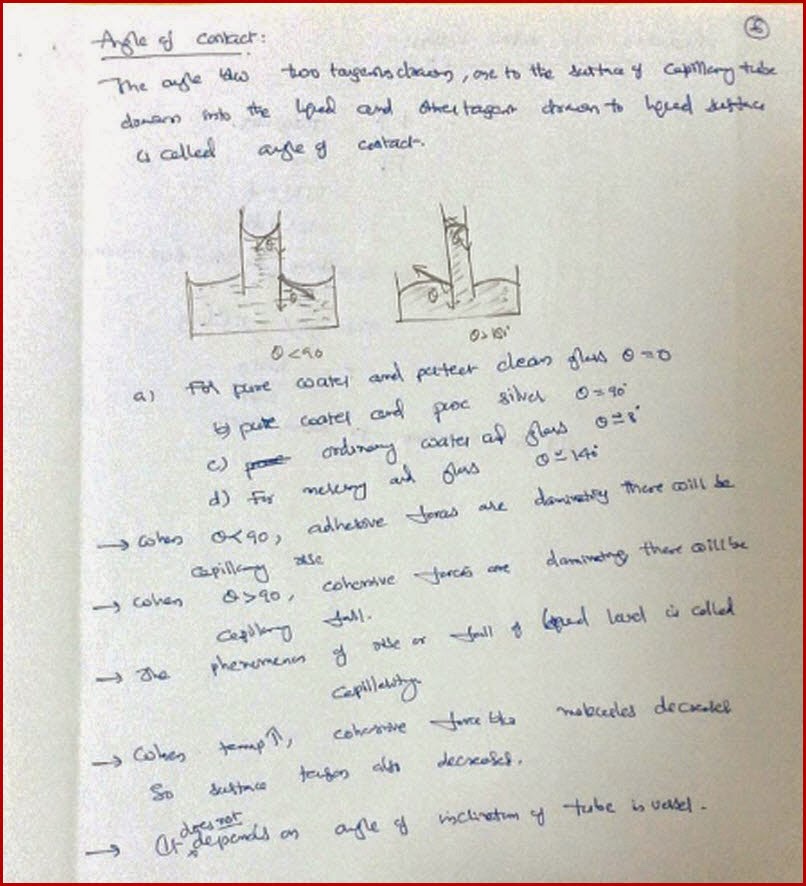 6
Angle of contact:
The angle b/w two tangents drawn, one to the surface of capillary tube
down into the liquid and other tangent drawn to liquid surface
is called angle of contact.
θ
θ
θ
θ
θ<90
a) For pure water and perfect clean glass θ=0
b) pure water and pure silver θ=90°
c) ordinary water and glass θ≅8°
d) For mercury and glass θ≅140°
→ When θ<90, adhesive forces are dominating there will be
capillary rise
→ When θ>90, cohesive forces are dominating there will be
capillary fall.
→ The phenomenon of rise or fall of liquid level is called
capillarity
→ When temp↑, cohesive force b/w molecules decreases
So surface tension also decreases.
does not
→ It depends on angle of inclination of tube is vessel.